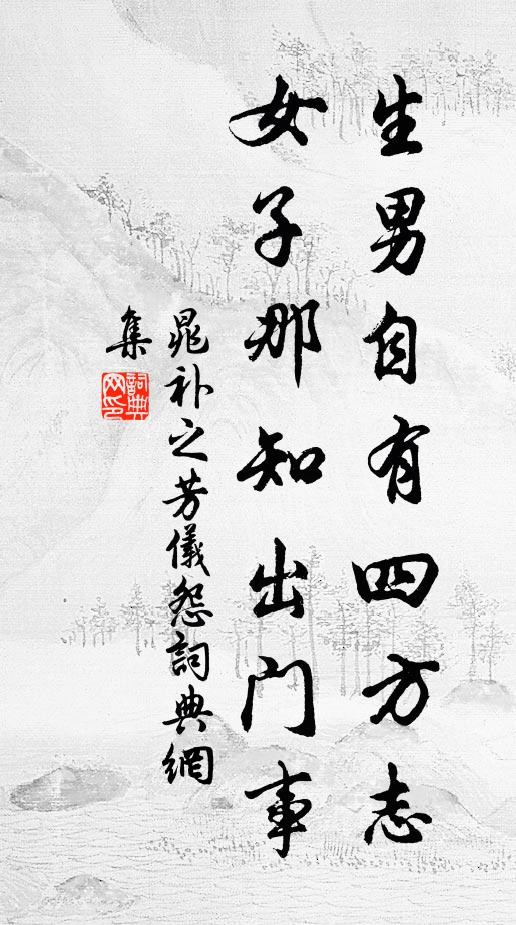 生男自有四方志
女子那知出門事
晁补之芳儀怨詞典網
集
詞典
网印